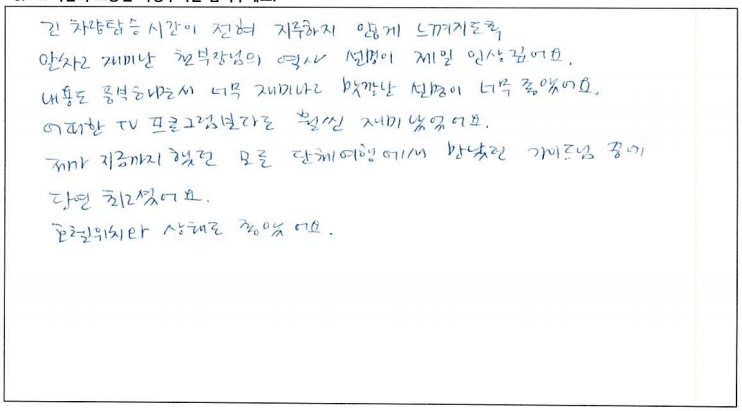 긴 차량탑승 시간이 전혀 지루하지 않게 느껴지도록
알차고 재미난 천부장님의 역사 설명이 제일 인상깊어요.
내용도 풍부하면서 너무 재미나고 맛깔난 설명이 너무 좋았어요.
어떠한 TV 프로그램보다도 훨씬 재미있었어요.
제가 지금까지 했던 모든 단체여행에서 만났던 가이드님 중에
단연 최고셨어요.
호텔위치와 상태도 좋았어요.